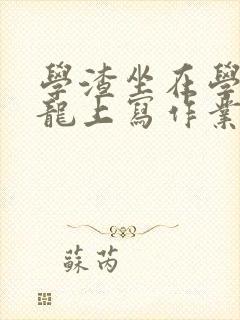 學渣坐在學
龍上寫作業
蘇芮